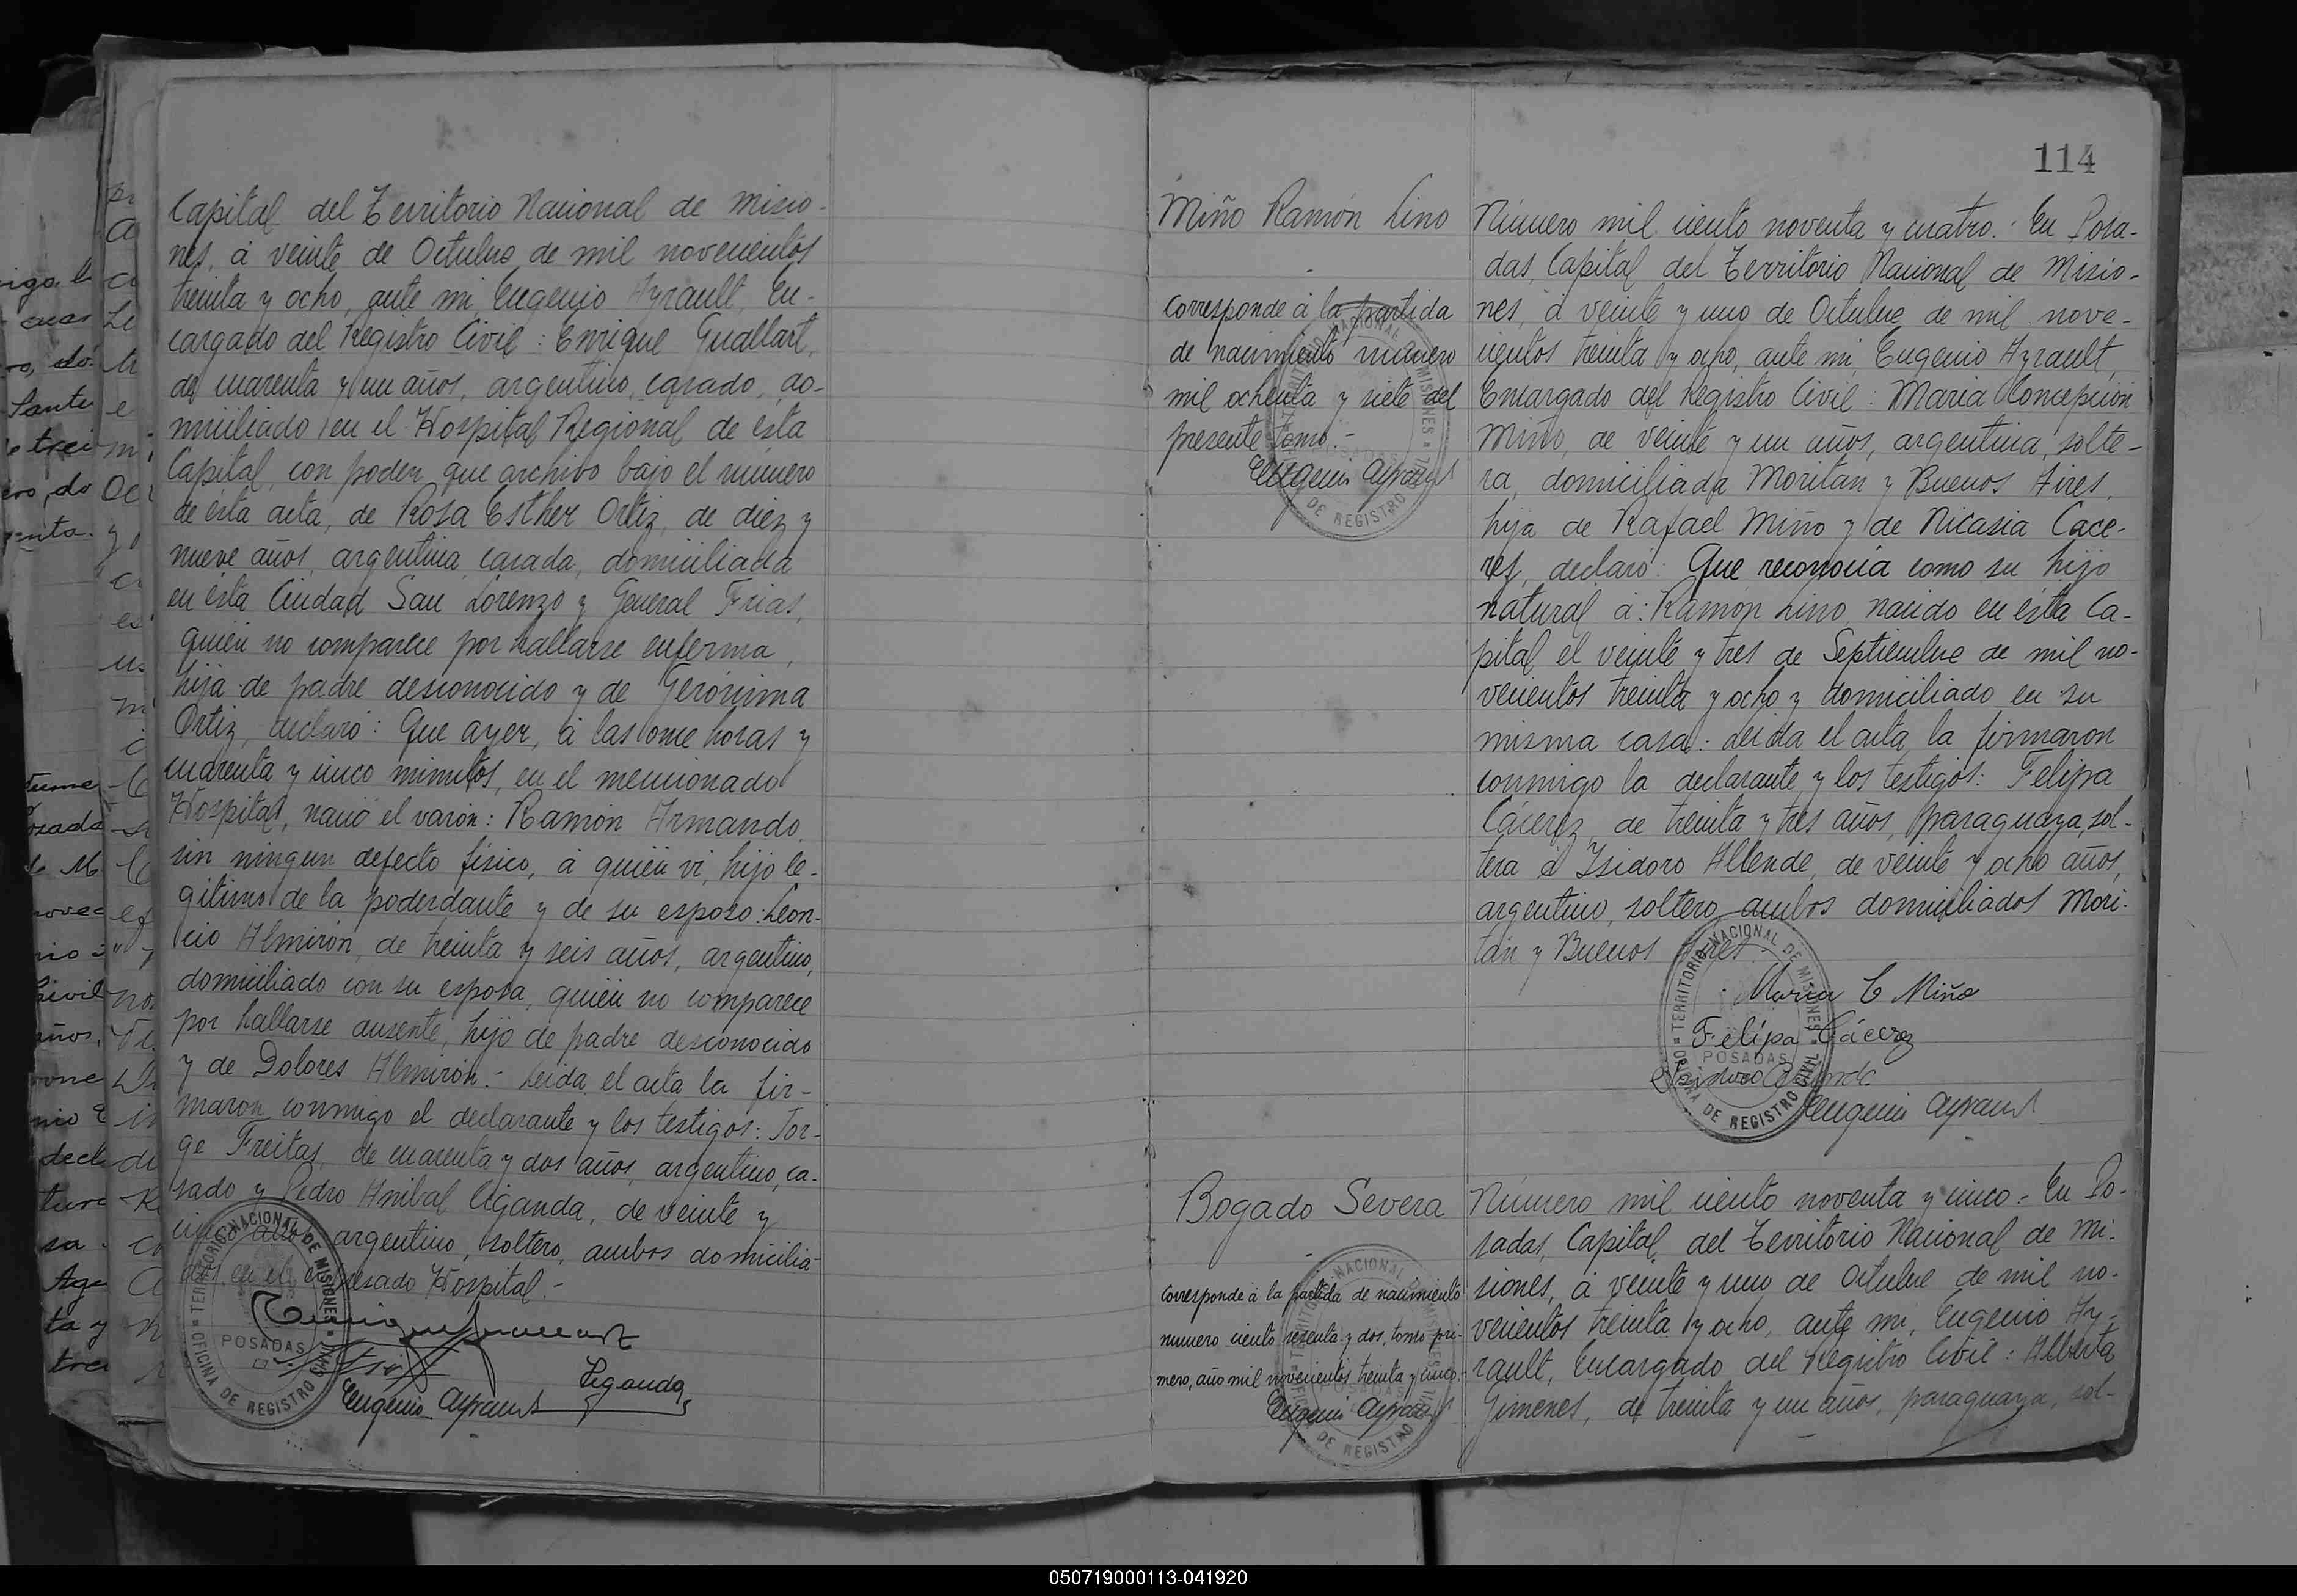 Capital del Territorio Nacional de Misio-
nes, à veinte de Octubre de mil novecientos
treinta y ocho, ante mi, Eugenio Ayrault, En-
cargado del Registro Civil: Enrique Guallart,
de cuarenta y un años, argentino, casado, do-
miciliado en el Hospital Regional de ésta
Capital, con poder que archivo bajo el número
de ésta acta, de Rosa Esther Ortiz, de diez y
nueve años, argentina, casada, domiciliada
en ésta Ciudad San Lorenzo y General Frias,
quién no comparece por hallarse enferma,
hija de padre desconocido y de Gerónima
Ortiz, declaró: Que ayer, à las once horas y
cuarenta y cinco minutos, en el mencionado
Hospital, nació el varón: Ramón Armando,
sin ningun defecto físico, á quién vi, hijo le-
gitimo de la poderdante y de su esposo: Leon-
cio Almirón, de treinta y seis años, argentino,
domiciliado con su esposa, quién no comparece
por hallarse ausente, hijo de padre desconocido
y de Dolores Almirón.- Leida el acta la fir-
maron conmigo el declarante y los testigos: Jor-
ge Freitas, de cuarenta y dos años, argentino, ca-
sado y Pedro Anibal Ciganda, de veinte y
cinco años, argentino, soltero, ambos domicilia-
dos en el expresado Hospital.-
TERRITORIO NACIONAL DE MISIONES
POSADAS
OFICINA DE REGISTRO CIVIL
Eugenio Ayrault
Ciganda
114
Miño Ramón Lino
Corresponde à la partida
de nacimiento número
mil ochenta y siete del
presente tomo.-
Eugenio Ayrault
Número mil ciento noventa y cuatro.- En Posa-
das, Capital del Territorio Nacional de Misio-
nes, à veinte y uno de Octubre de mil nove-
cientos treinta y ocho, ante mi, Eugenio Ayrault,
Encargado del Registro Civil: Maria Concepción
Miño, de veinte y un años, argentina, solte-
ra, domiciliada Moritan y Buenos Aires,
hija de Rafael Miño y de Nicasia Cace-
res, declaró: Que reconocia como su hijo
natural á: Ramón Lino, nacido en ésta Ca-
pital, el veinte y tres de Septiembre de mil no-
vecientos treinta y ocho y domiciliado en su
misma casa.- Leida el acta la firmaron
conmigo la declarante y los testigos: Felipa
Cácerez, de treinta y tres años, paraguaya, sol-
tera é Isidoro Allende, de veinte y ocho años,
argentino, soltero, ambos domiciliados Mori-
tán y Buenos Aires.-
TERRITORIO NACIONAL DE MISIONES
POSADAS
OFICINA DE REGISTRO CIVIL
Maria C Miño
Felipa Cácerez
Eugenio Ayrault
Bogado Severa
Corresponde à la partida de nacimiento
numero ciento sesenta y dos, tomo pri-
mero, año mil novecientos treinta y cinco.
Eugenio Ayrault
Número mil ciento noventa y cinco.- En Po-
sadas, Capital del Territorio Nacional de Mi-
siones, à veinte y uno de Octubre de mil no-
vecientos treinta y ocho, ante mi, Eugenio Ay-
rault, Encargado del Registro Civil: Alberta
Gimenes, de treinta y un años, paraguaya, sol-
050719000113-041920